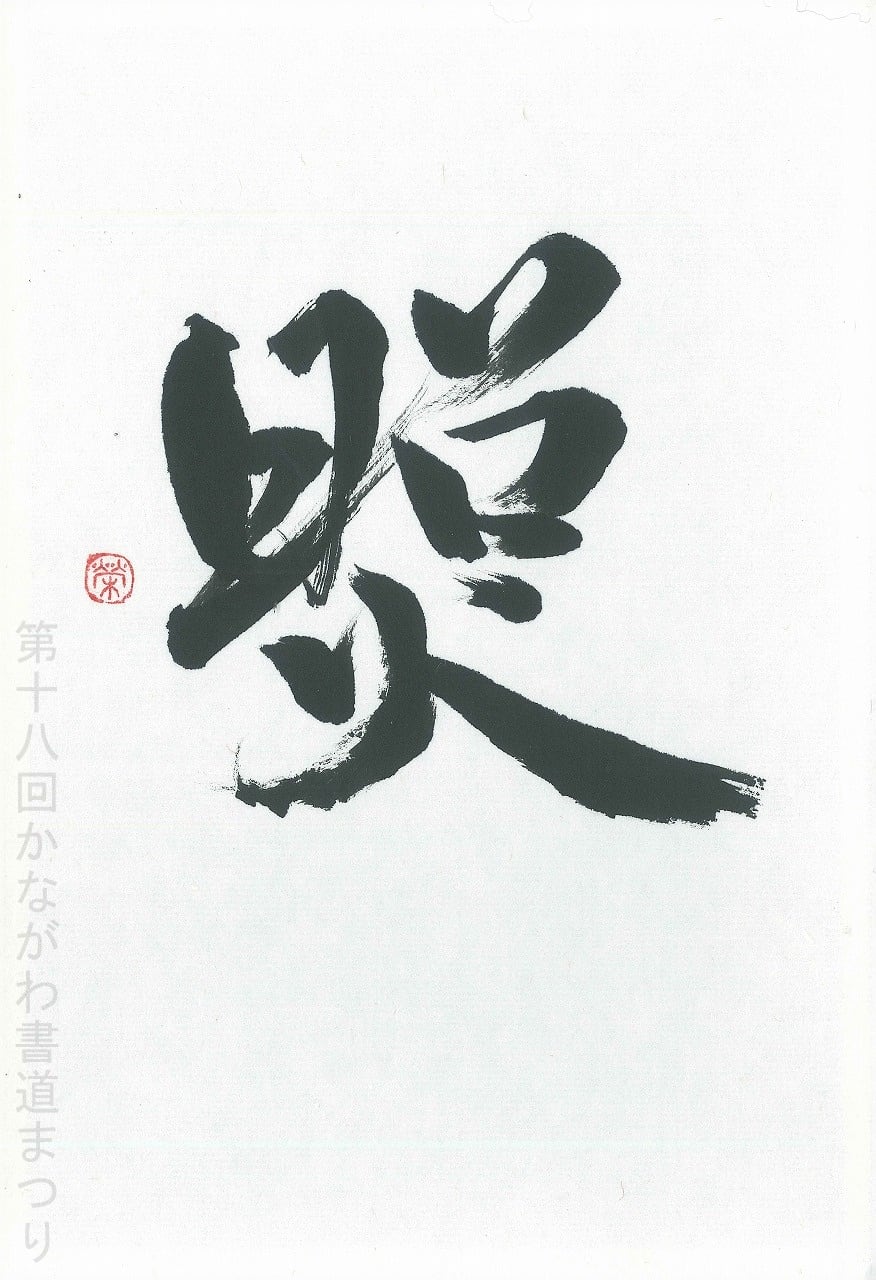 照
榮
第十八回かながわ書道まつり